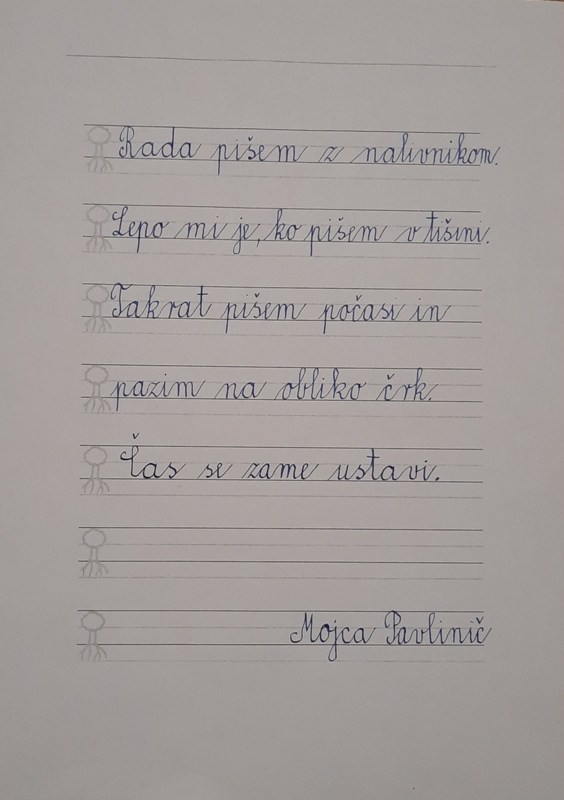 Rada pišem z nalivnikom.
Lepo mi je, ko pišem v tišini.
Takrat pišem počasi in
pazim na obliko črk.
Čas se zame ustavi.
Mojca Pavlinič